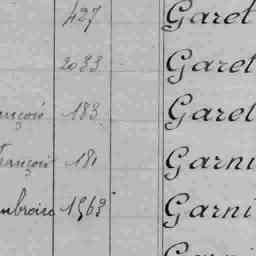 427 Garet
2033 Garet
ançois 183 Garet
rançois 181 Garni
mbroise 1963 Garni